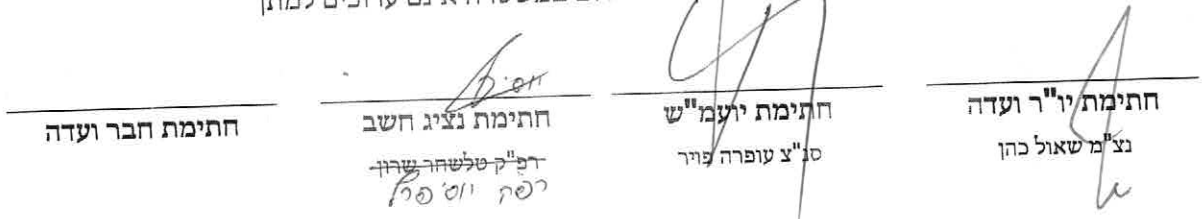 אינם ערוכים למתן
חתימת יו"ר ועדה
נצ"מ שאול כהן
חתימת יועמ"ש
סנ"צ עופרה פויר
חתימת נציג חשב
רפ"ק טלשחר שרון
רפ"ק יוסי פרץ
חתימת חבר ועדה